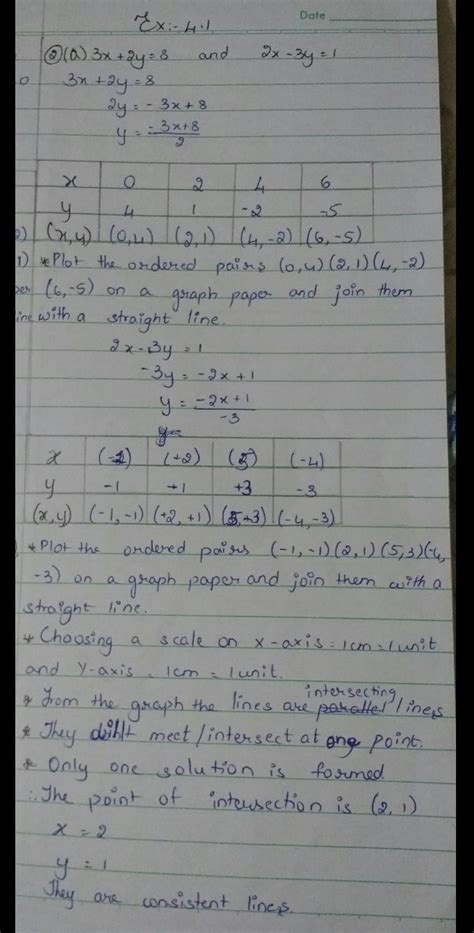 Date
Ex:- 4.1
② (a) 3x+2y=8 and 2x-3y=1
3x+2y=8
2y = -3x+8
y = -3x+8/2
x 0 2 4 6
y 4 1 -2 -5
(x,y) (0,4) (2,1) (4,-2) (6,-5)
*Plot the ordered pairs (0,4)(2,1)(4,-2)
(6,-5) on a graph paper and join them
with a straight line.
2x-3y=1
-3y = -2x+1
y = -2x+1/-3
y=
x (-1) (+2) (5) (-4)
y -1 +1 +3 -3
(x,y) (-1,-1) (+2,+1) (5,+3) (-4,-3)
*Plot the ordered pairs (-1,-1)(2,1)(5,3)(-4,
-3) on a graph paper and join them with a
straight line.
* Choosing a scale on x-axis=1cm=1unit
and Y-axis . 1cm = 1unit.
intersecting
* From the graph the lines are parallel lines
* They meet/intersect at one point.
* Only one solution is formed
∴ The point of intersection is (2,1)
x = 2
y = 1
They are consistent lines.